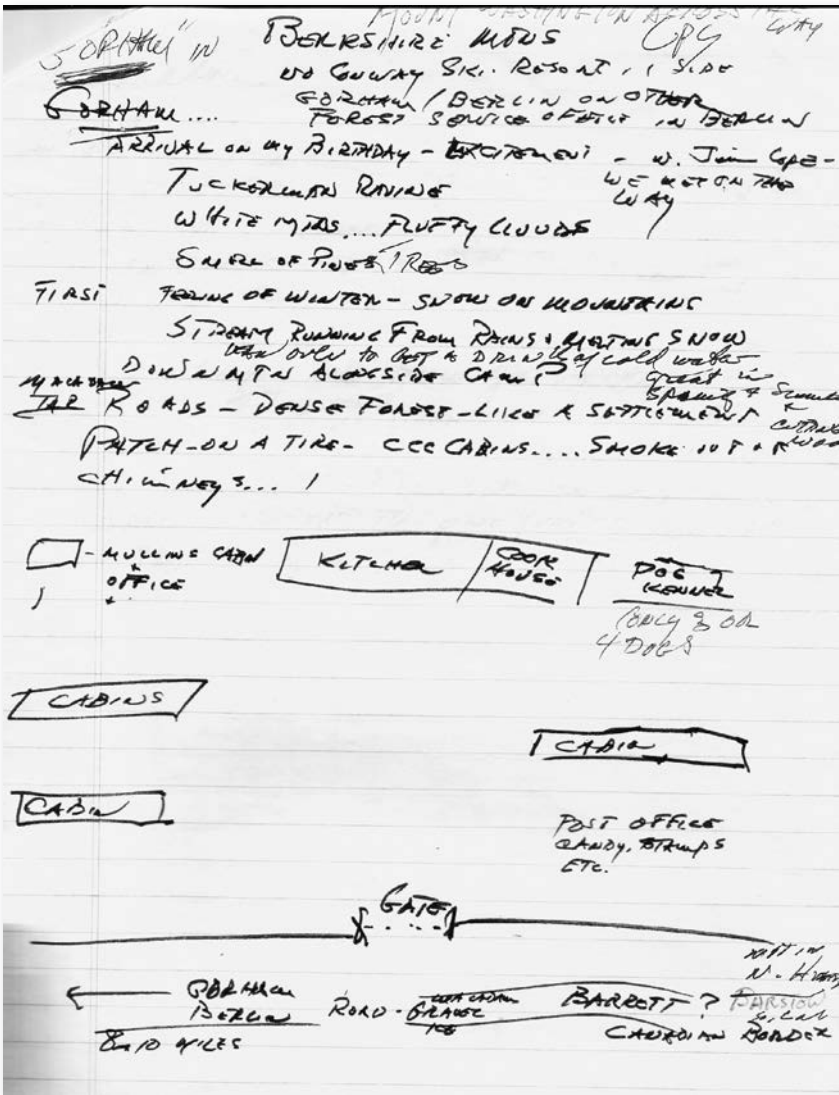 MOUNT WASHINGTON ACROSS THE WAY
"GORHAM" IN BERKSHIRE MTNS
NO CONWAY SKI. RESORT, 1 SIDE
GORHAM / BERLIN ON OTHER
GORHAM.... FOREST SERVICE OFFICE IN BERLIN
ARRIVAL ON MY BIRTHDAY - EXCITEMENT - W. JIM COPE -
WE MET ON THE WAY
TUCKERMAN RAVINE
WHITE MTNS .... FLUFFY CLOUDS
SMELL OF PINES TREES
FIRST FEELING OF WINTER - SNOW ON MOUNTAINS
STREAM RUNNING FROM RAINS + MELTING SNOW
ran over to GET A DRINK of cold water
great in SPRING + Summer
DOWN MTN ALONGSIDE CAMP
MACADAM
TAR ROADS - DENSE FOREST - LIKE A SETTLEMENT
+ CUTTING WOOD
PATCH-ON A TIRE - CCC CABINS.... SMOKE OUT
CHIMNEYS... !
- MULLINS CABIN + OFFICE
KITCHEN
COOK HOUSE
DOG KENNEL
(ONLY 3 OR 4 DOGS
CABINS
CABIN
CABIN
POST OFFICE
CANDY, STAMPS
ETC.
GATE
NOT IN
GORHAM
BERLIN
8 TO 10 MILES
ROAD - MACADAM
GRAVEL
ICE
BARRETT ? BARSTOW
CANADIAN BORDER